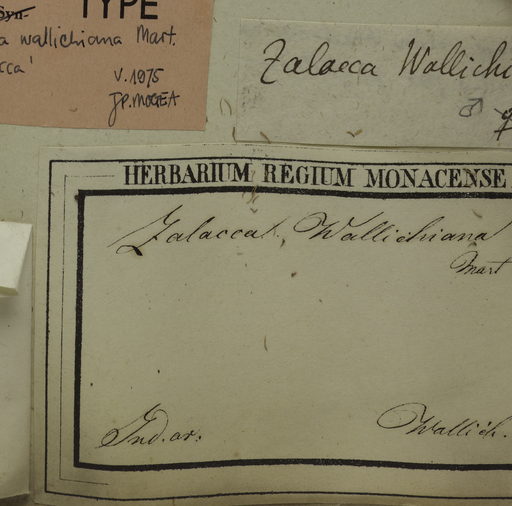 Syn- TYPE
a wallichiana Mart.
cca'
V. 1975
JP. MOGEA
Zalacca Wallichi
♂ ♀
HERBARIUM REGIUM MONACENSE
Zalacca, Wallichiana
Mart
Ind. or. Wallich.